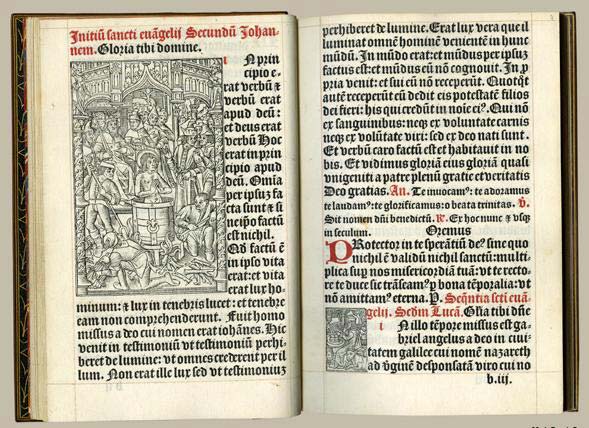 Initiū sancti euāgelij Secundū Johan-
nem. Gloria tibi domine.
IN prin
cipio e-
rat verbū ⁊
verbū erat
apud deū:
et deus erat
verbū Hoc
erat in prin
cipio apud
deū. Omīa
per ipsuȝ fa
cta sunt ⁊ si
ne ip̄o factū
est nichil.
Qd̄ factū ē
in ipso vita
erat: et vita
erat lux ho-
minum: ⁊ lux in tenebris lucet: et tenebre
eam non comprehenderunt. Fuit homo
missus a deo cui nomen erat iohānes. Hic
venit in testimoniū vt testimoniū perhi-
beret de lumine: vt omnes crederent per il
lum. Non erat ille lux sed vt testimoniuȝ
perhiberet de lumine. Erat lux vera que il
luminat omnē hominē venientē in hunc
mūdū. In mūdo erat: et mūdus per ipsuȝ
factus est: et mūdus eū nō cognouit. In ꝓ
pria venit: et sui eū nō receperūt. Quotqt̄
autē receperūt eū dedit eis potestatē filios
dei fieri: his qui credūt in noīe eiꝰ. Qui nō
ex sanguinibus: neqȝ ex voluntate carnis
neqȝ ex volūtate viri: sed ex deo nati sunt.
Et verbū caro factū est et habitauit in no
bis. Et vidimus gloriā eius gloriā quasi
vnigeniti a patre plenū gratie et veritatis
Deo gratias. An. Te inuocamꝰ: te adoramus
te laudamꝰ: te glorificamus: o beata trinitas. ℣.
Sit nomen dn̄i benedictū. ℟. Ex hoc nunc ⁊ vsqȝ
in seculum. Oremus
PRotector in te sperātiū deꝰ sine quo
nichil ē validū nichil sanctū: multi-
plica sup nos misericordiā tuā: vt te recto-
re te duce sic trāseamꝰ p bona tēporalia: vt
nō amittamꝰ eterna. P. Seqn̄tia scti euā-
gelij. Scd̄m Lucā. Glīa tibi dn̄e
IN illo tēpore missus est ga-
briel angelus a deo in ciui-
tatem galilee cui nomē nazareth
ad v̓ginē desponsatā viro cui no
b.iij.